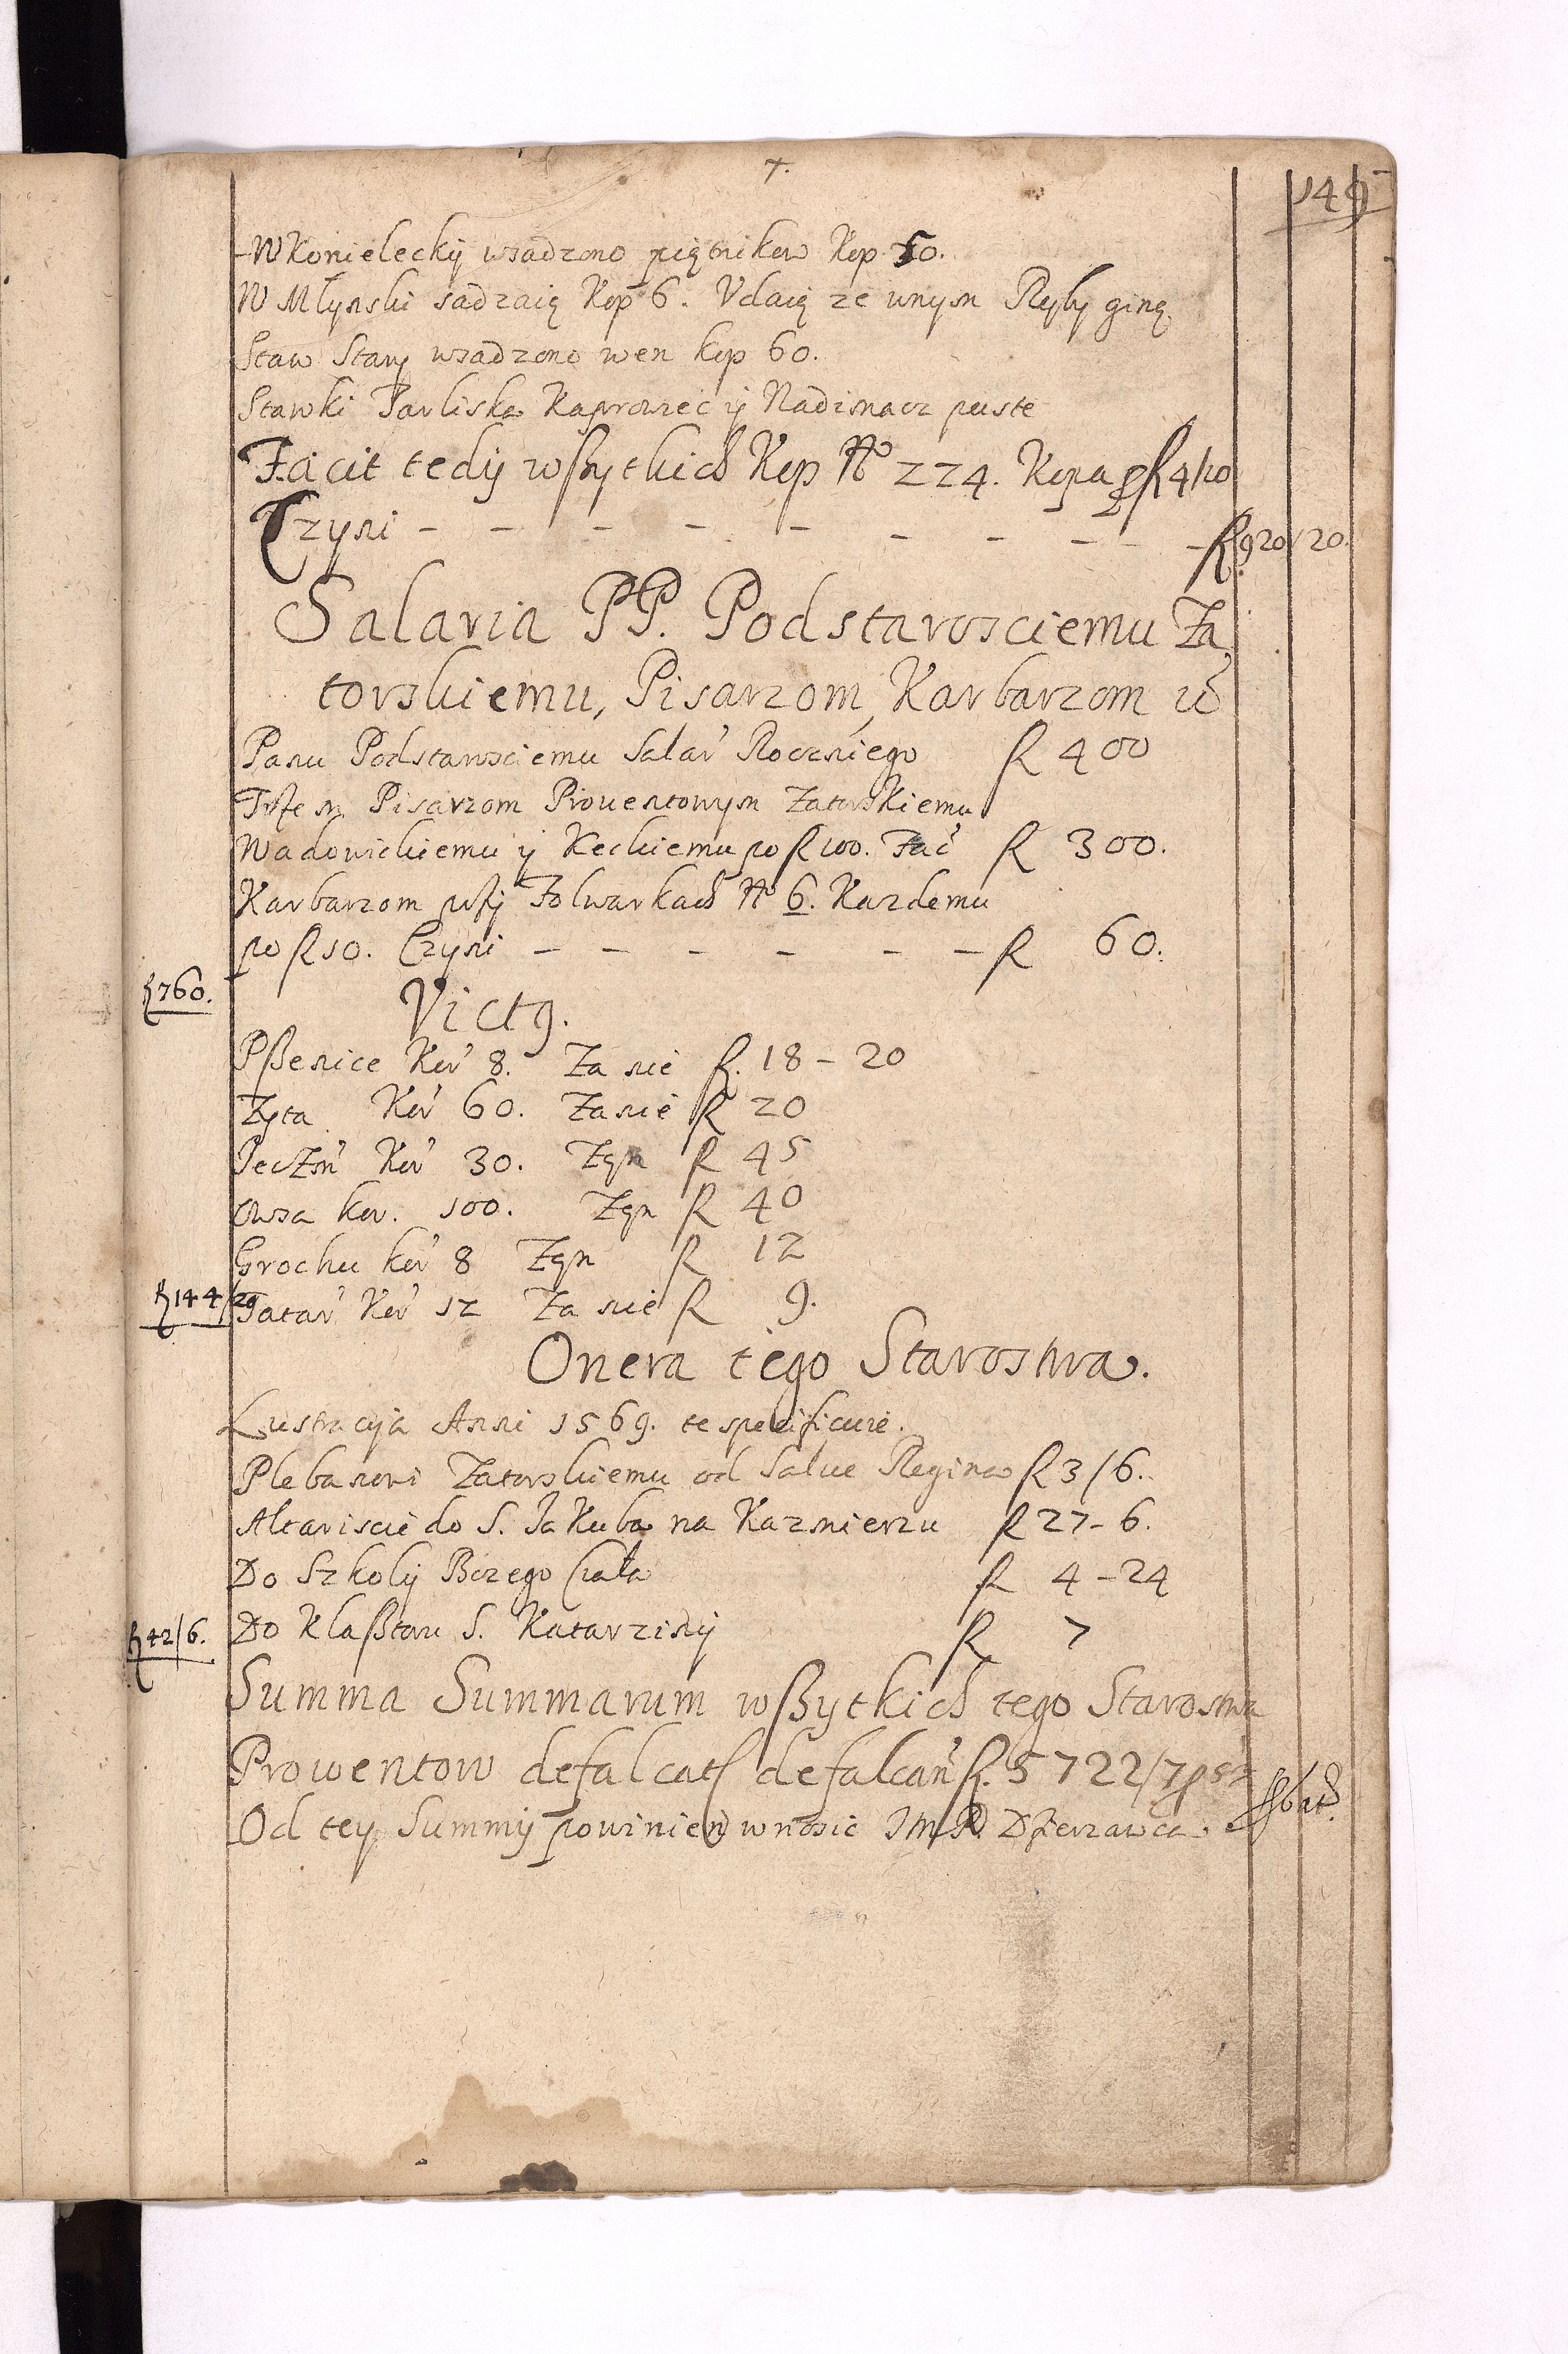 7.
149
W Konielecky wsadzono piątnikow Kop 50.
W Młynski sadzaią Kop 6. Udaią ze wnym Ryby giną
Staw Stary wsadzono wen kop 60.
Stawki Pavliska Kaprowiec ij Nadimacz puste
Facit tedij wszytkich Kop No 224. Kopa p fl 4/10
Czyni – – – – – – – – – fl 920/20.
Salaria PP. Podstarosciemu Za
torskiemu, Pisarzom, Karbarzom
Panu Podstarosciemu Salar Rocznego fl 400
Trzem Pisarzom Proventowym Zatorskiemu
Wadowickiemu ij Keckiemu po fl 100. Fac fl 300.
Karbarzom przij Folwarkach No 6. Kazdemu
po fl 10. Czyni – – – – – – fl 60.
fl 760.
Victg.
Pszenice Kor 8. Za nie fl. 18 – 20
Zyta Kor 60. Zanie fl 20
Jeczm Kor 30. Zan fl 45
Owsa kor. 100. Zan fl 40
Grochu kor 8 Zan fl 12
fl 144/20
Tatar Kor 12 Za nie fl 9.
Onera tego Starostwa.
Lustracyia Anni 1569. te specificuie.
Plebanowi Zatorskiemu od Salve Regina fl 3/6.
Altariscie do S. Jakuba na Kazmierzu fl 27–6.
Do Szkoly Bozego Ciała fl 4–24
fl 42/6.
Do Klasztoru S. Katarziny fl 7
Summa Summarum wszytkich tego Starostwa
Prowentow defalcatis defalcan fl. 5722/7
Od tey Summy powinien wnosic JmP. Dzierzawca.